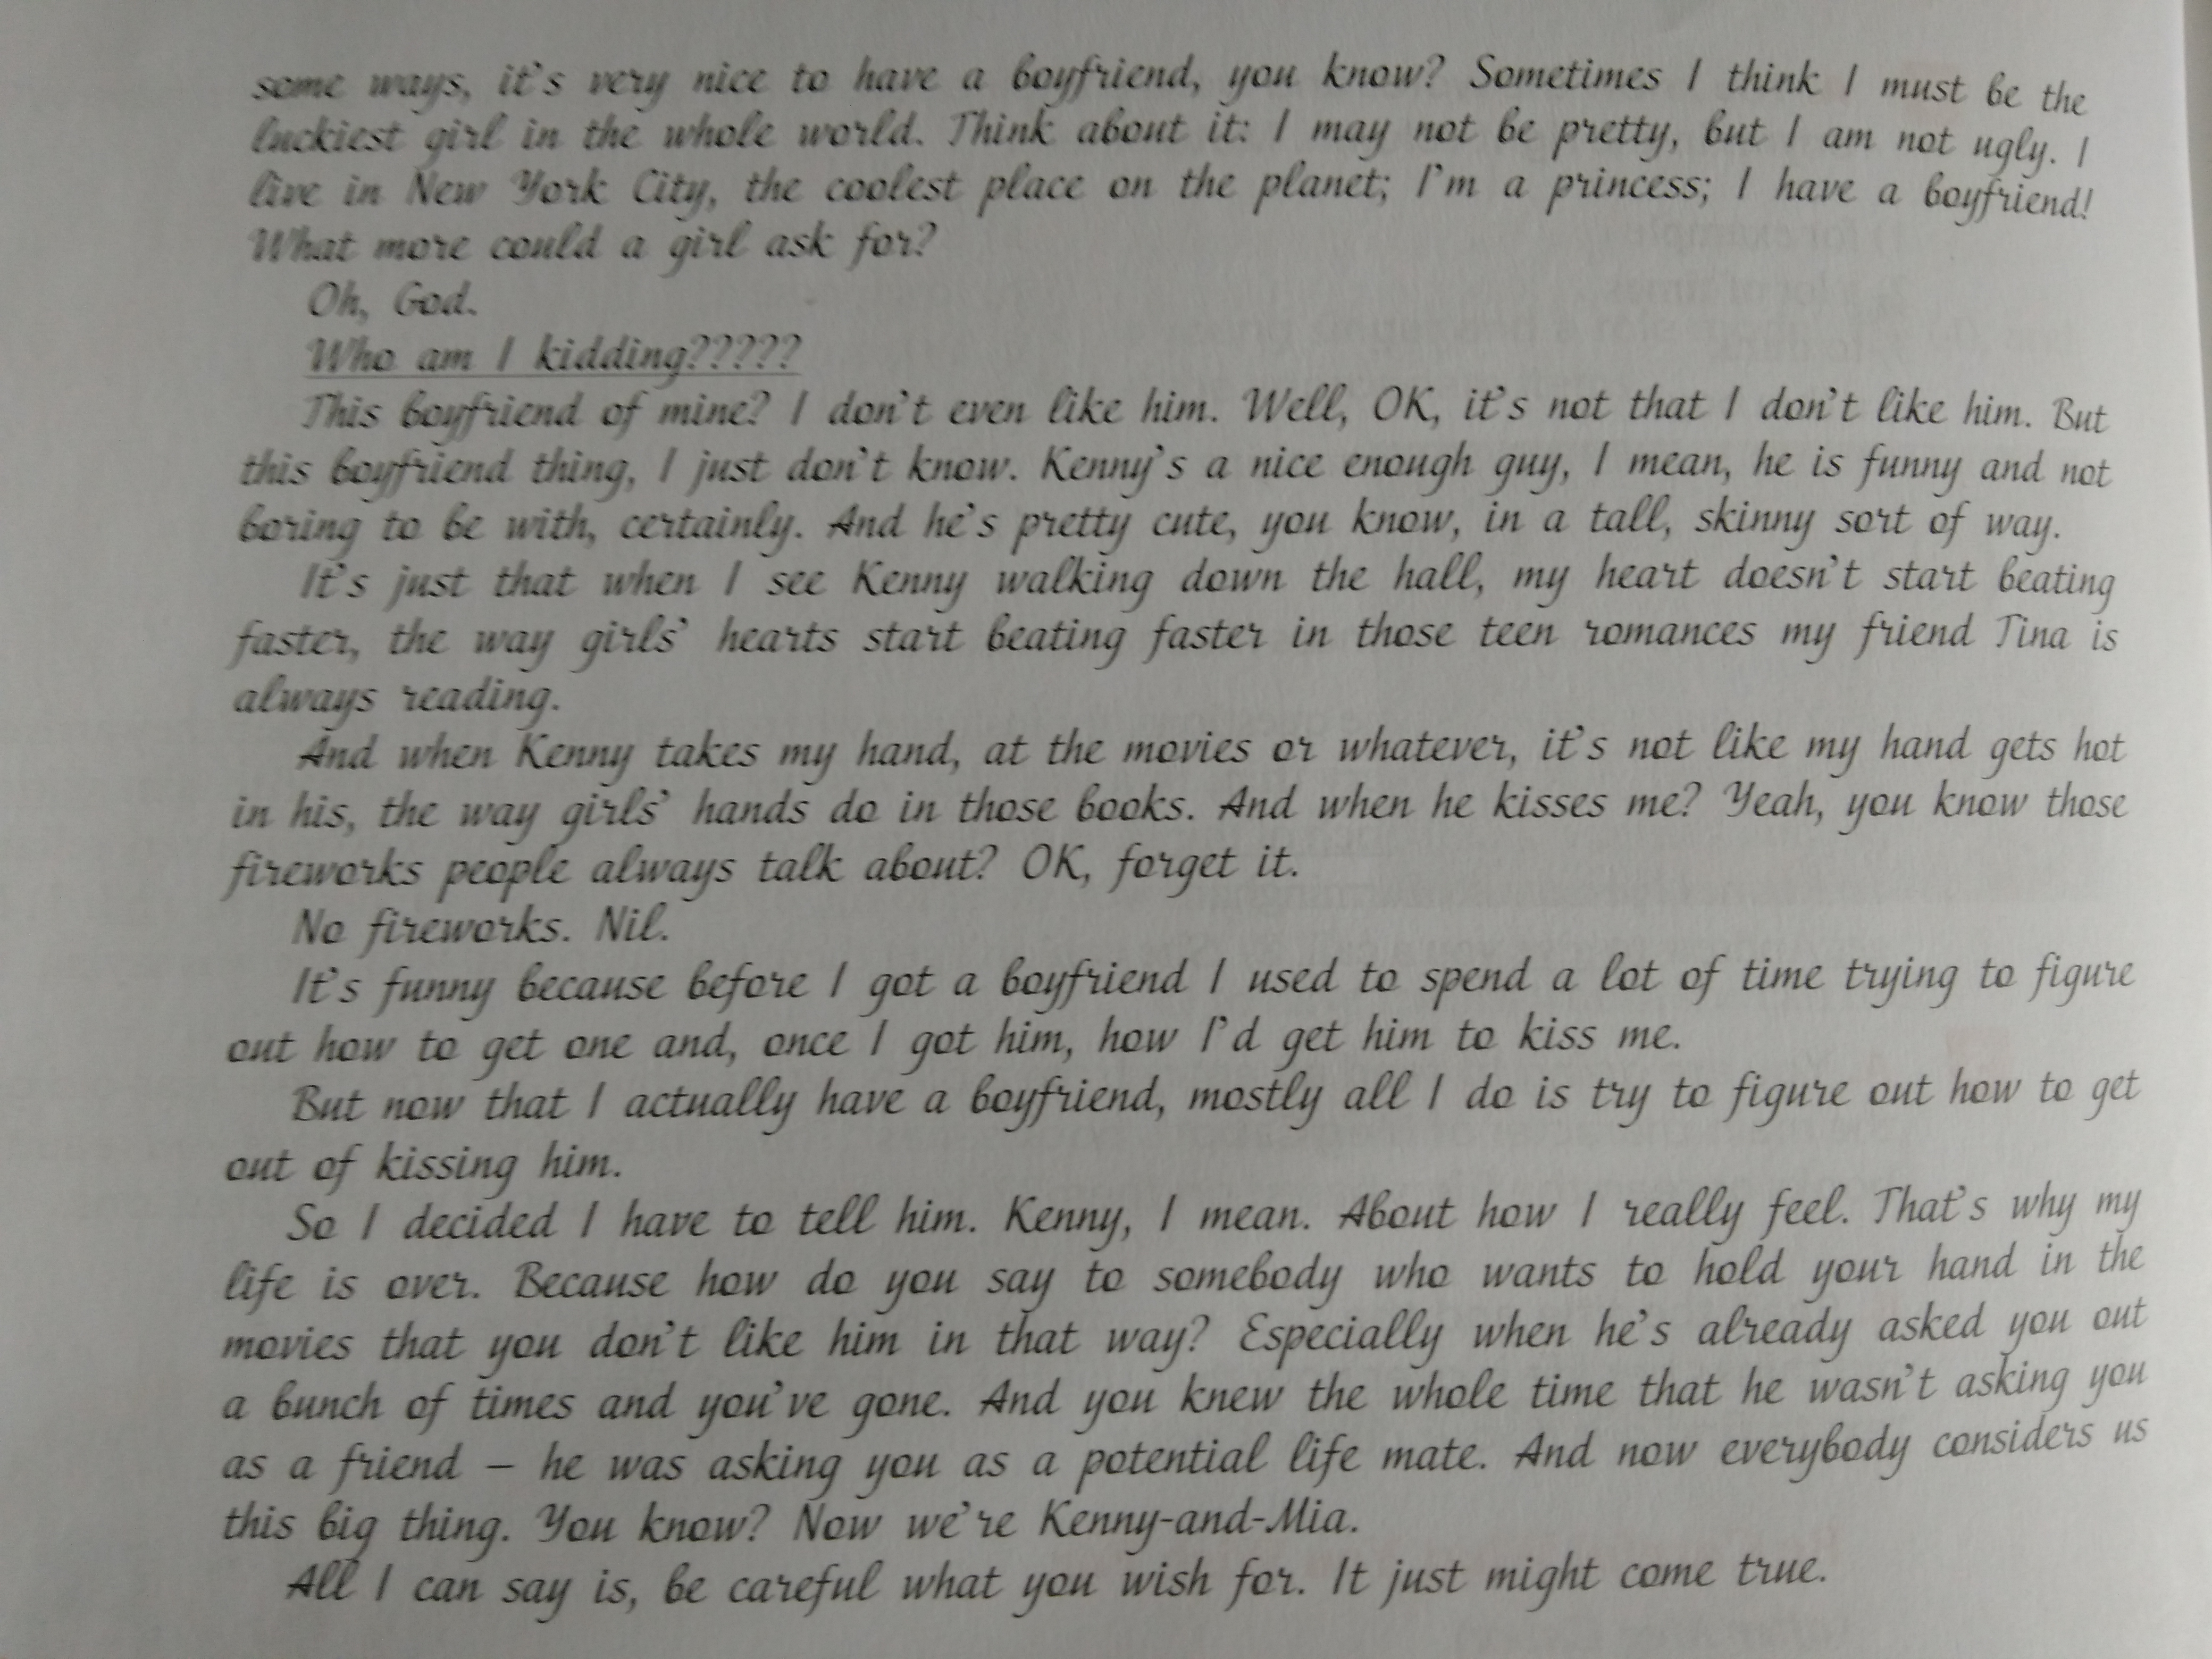 some ways, it's very nice to have a boyfriend, you know? Sometimes I think I must be the
luckiest girl in the whole world. Think about it: I may not be pretty, but I am not ugly. I
live in New York City, the coolest place on the planet; I'm a princess; I have a boyfriend!
What more could a girl ask for?
Oh, God.
Who am I kidding?????
This boyfriend of mine? I don't even like him. Well, OK, it's not that I don't like him. But
this boyfriend thing, I just don't know. Kenny's a nice enough guy, I mean, he is funny and not
boring to be with, certainly. And he's pretty cute, you know, in a tall, skinny sort of way.
It's just that when I see Kenny walking down the hall, my heart doesn't start beating
faster, the way girls' hearts start beating faster in those teen romances my friend Tina is
always reading.
And when Kenny takes my hand, at the movies or whatever, it's not like my hand gets hot
in his, the way girls' hands do in those books. And when he kisses me? Yeah, you know those
fireworks people always talk about? OK, forget it.
No fireworks. Nil.
It's funny because before I got a boyfriend I used to spend a lot of time trying to figure
out how to get one and, once I got him, how I'd get him to kiss me.
But now that I actually have a boyfriend, mostly all I do is try to figure out how to get
out of kissing him.
So I decided I have to tell him. Kenny, I mean. About how I really feel. That's why my
life is over. Because how do you say to somebody who wants to hold your hand in the
movies that you don't like him in that way? Especially when he's already asked you out
a bunch of times and you've gone. And you knew the whole time that he wasn't asking you
as a friend – he was asking you as a potential life mate. And now everybody considers us
this big thing. You know? Now we're Kenny-and-Mia.
All I can say is, be careful what you wish for. It just might come true.